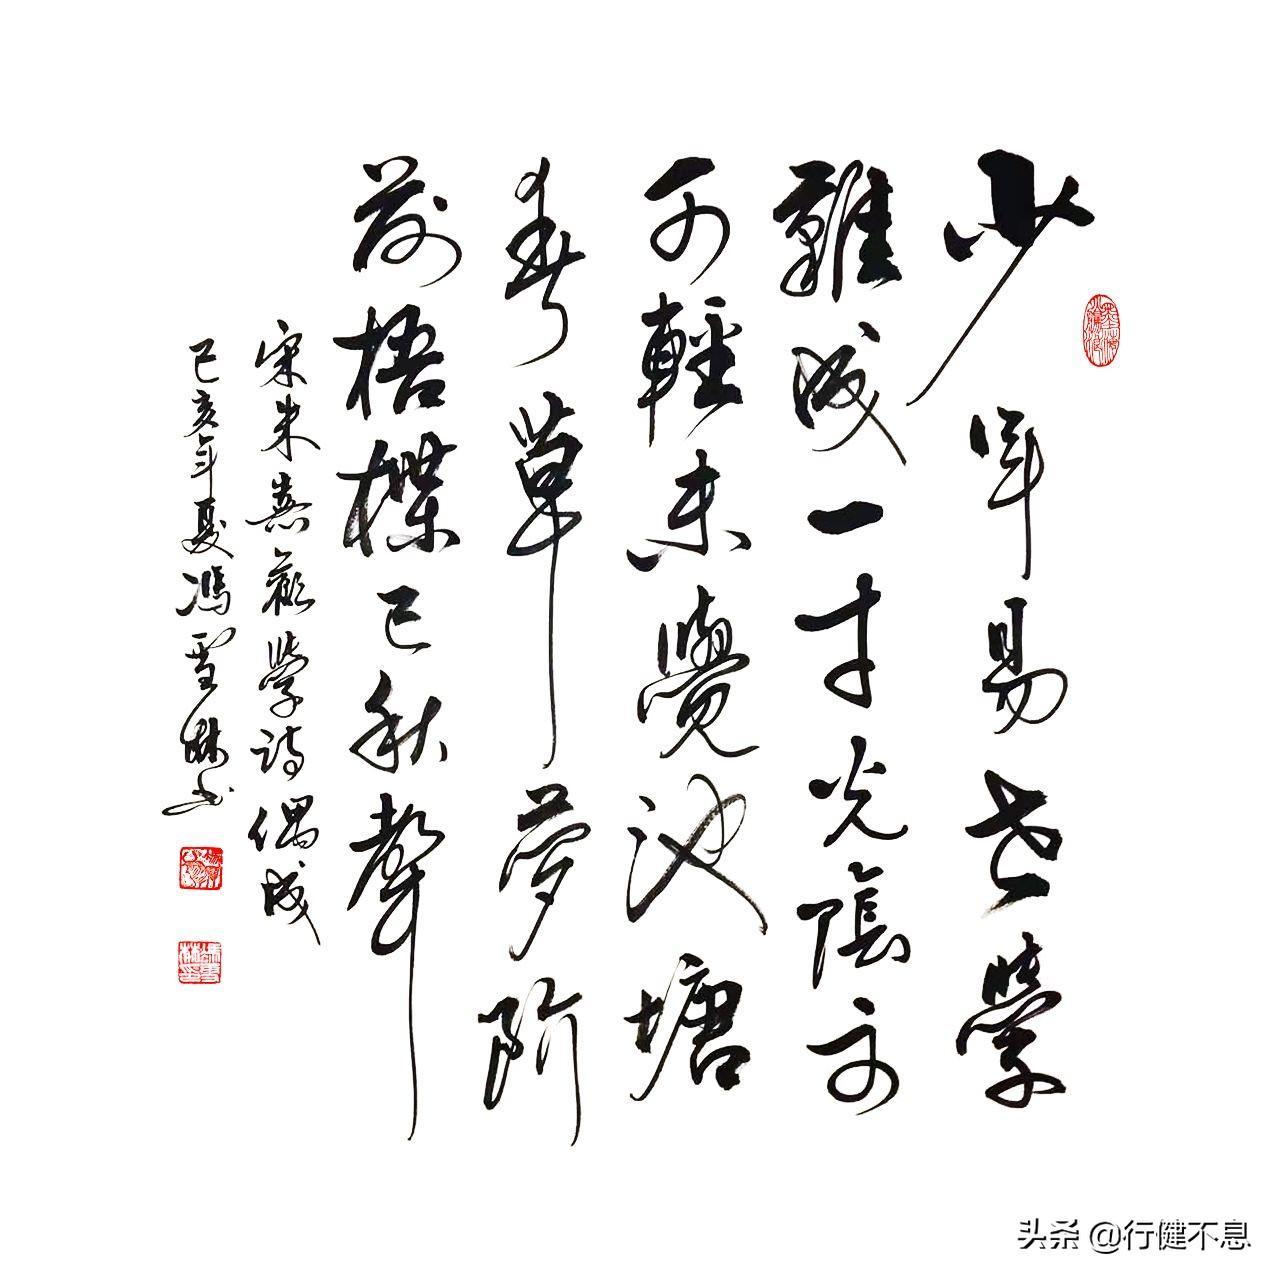 少年易老學
難成一寸光陰不
可輕未覺池塘
春草夢階
前梧楪已秋聲
宋朱熹勸學詩偶成
己亥年夏馮雪林書
头条 @行健不息